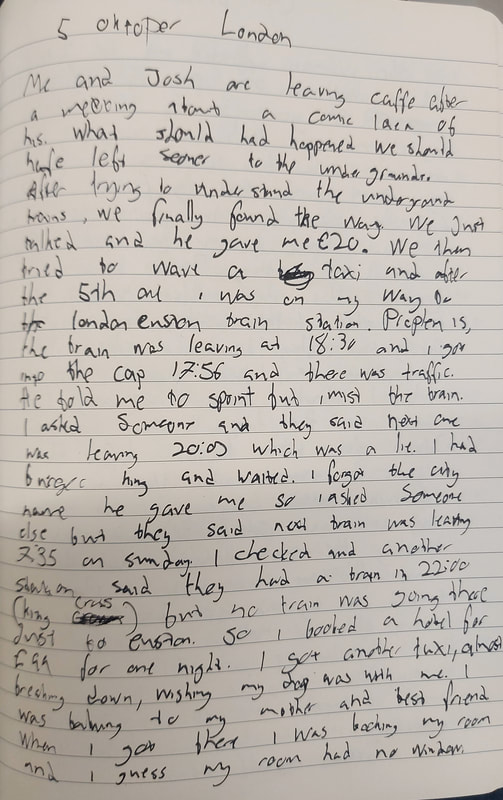 5 oktoper London
Me and Josh are leaving caffe after
a meering about a comic lack of
his. What should had happened we should
have left sooner to the undergrounds.
After trying to understand the underground
trains, we finally found the way. We Just
talked and he gave me £20. We then
tried to wave a taxi and after
the 5th one i was on my way to
london enston train station. Proplen is,
the train was leaving at 18:30 and i got
into the cap 17:56 and there was traffic.
He told me to sprint but i mist the train.
I asked someone and they said next one
was leaving 20:03 which was a lie. I had
king and waited. I forgot the city
name he gave me so i asked someone
else but they said next train was leaving
7:35 on sunday. I checked and another
station said they had a train in 22:00
(king cross) but no train was going there
Just to enston. So i booked a hotel for
£99 for one night. I got another taxi, almost
breaking down, wishing my dog was with me. I
was to my mother and best friend
When I got there I was my room
and i guess my room had no window.